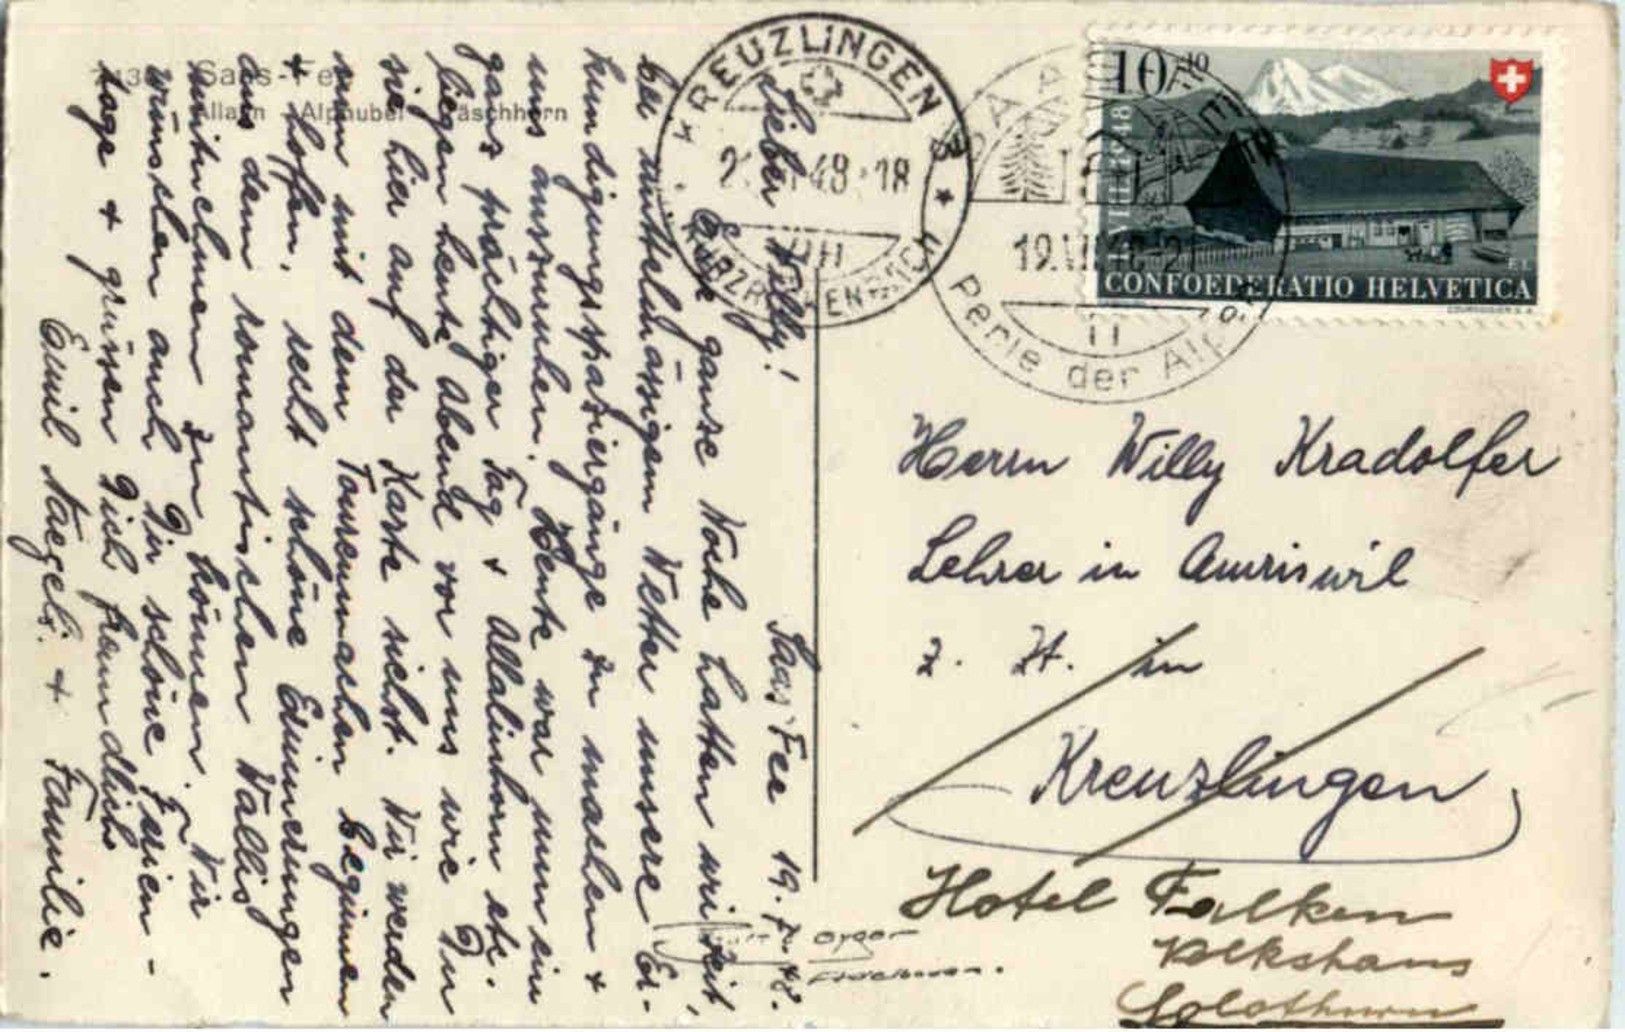 Saas-Fee 19.7.48.
Lieber Willy!
Eine ganze Woche hatten wir Zeit,
bei mittelmässigem Wetter unsere Er-
kundigungsspaziergänge zu machen &
uns auszuruhen. Heute war nun ein
ganz prächtiger Tag & Allalinhorn etc.
liegen heute Abend vor uns wie Du
sie hier auf der Karte siehst. Wir werden
nun mit dem Tourenmachen beginnen
& hoffen, recht schöne Erinnerungen
aus dem romantischen Wallis
mitnehmen zu können. Wir
wünschen auch Dir schöne Ferien-
tage & grüssen Dich freundlich
Emil Naegeli & Familie.
Saas-Fee
Allalin Alphubel Täschhorn
KREUZLINGEN
48.-18
KREUZLINGEN
SAAS-FEE
19.VII.48-21
Perle der Alpen
10+10
1848
1948
CONFOEDERATIO HELVETICA
Herrn Willy Kradolfer
Lehrer in Amriswil
z. Zt. in
Kreuzlingen
Hotel Falken
Volkshaus
Solothurn